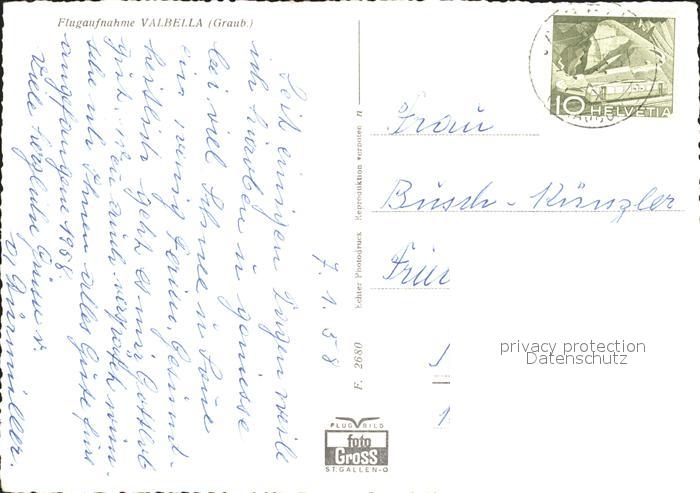 Flugaufnahme VALBELLA (Graub.)
7. 1. 58
Seit einigen Tagen weile
ich hieroben u. geniesse
bei viel Schnee u. Sonne
ein wenig Ferien. Gesund-
heitlich geht es mir Gottlob
gut. Wenn auch verspätet wün-
sche ich Ihnen alles Gute fürs
angefangene 1958.
Viele herzliche Grüsse v.
Echter Photodruck Reproduktion verboten
F. 2680
FLUG BILD
foto
Gross
ST.GALLEN-O
10 HELVETIA
Frau
Busch-Künzler
privacy protection
Datenschutz